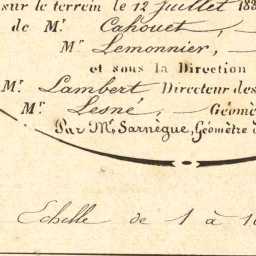 sur le terrein le 12 juillet 188
de Mr. Cahouet,
Mr Lemonnier,
et sous la Direction
Mr. Lambert Directeur des
Mr. Lesné, Géomè
Par Mr. Sarnègue, Géomètre
Echelle de 1 à 10